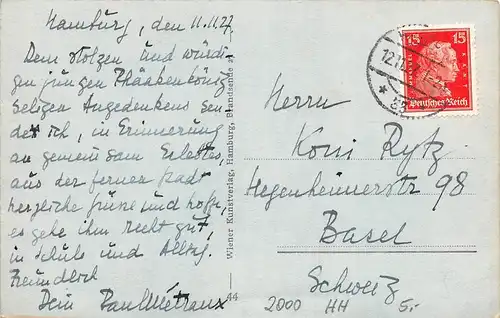 Hamburg, den 11.11.27.
Dem stolzen und würdi-
gen jungen Phäakenkönig
seligen Angedenkens sen-
det ich, in Erinnerung
an gemeinsam Erlebtes,
aus der fernen Stadt
herzliche Grüsse und hoffe,
es gehe ihm recht gut,
in Schule und Alltag.
Freundlich
Dein Paul Métraux
Wiener Kunstverlag, Hamburg, Brandsende
44
15 15
Deutsches Reich
12.11.27
Herrn
Koni Rytz
Hegenheimerstr 98
Basel
Schweiz
2000 HH 5.-